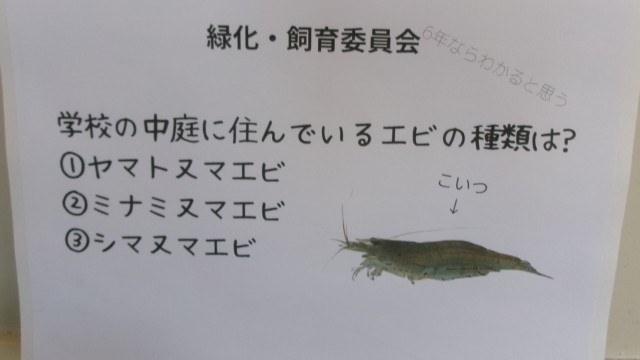 緑化・飼育委員会
6年ならわかると思う
学校の中庭に住んでいるエビの種類は?
①ヤマトヌマエビ
②ミナミヌマエビ
③シマヌマエビ
こいつ
↓